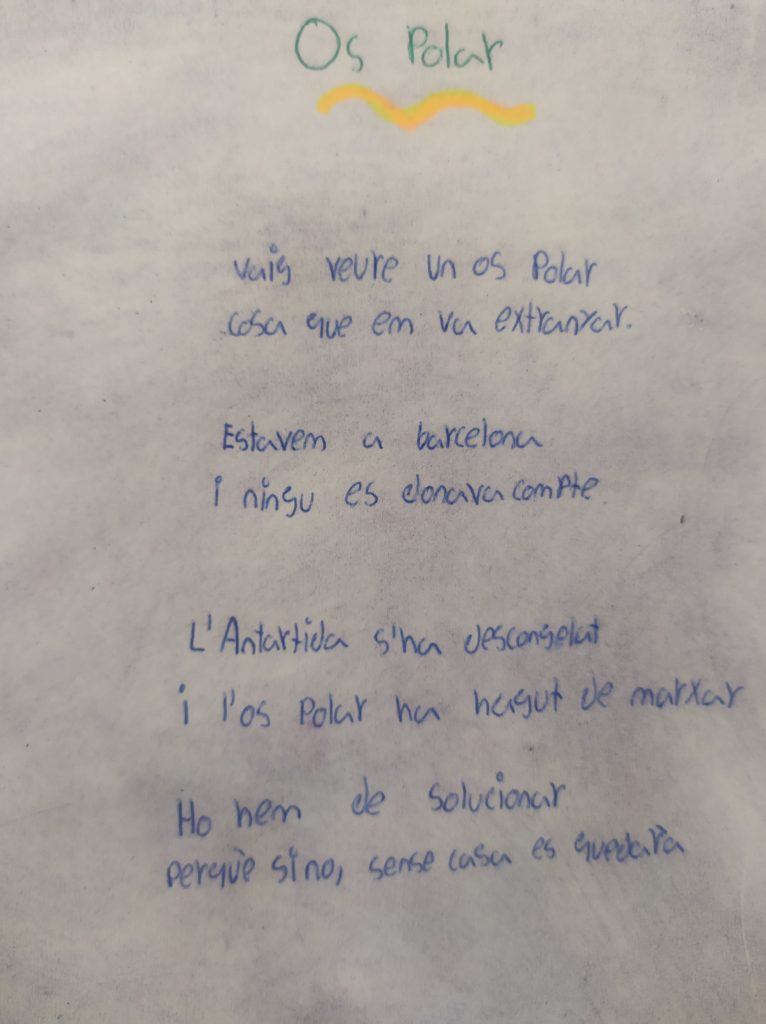 Os Polar
vaig veure un os Polar
cosa que em va extranyar.
Estavem a barcelona
i ningu es donava compte
L'Antartida s'ha descongelat
i l'os Polar ha hagut de marxar
Ho hem de solucionar
perquè sino, sense casa es quedarà